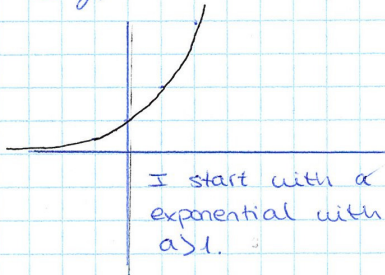 I start with a
exponential with
a>1.